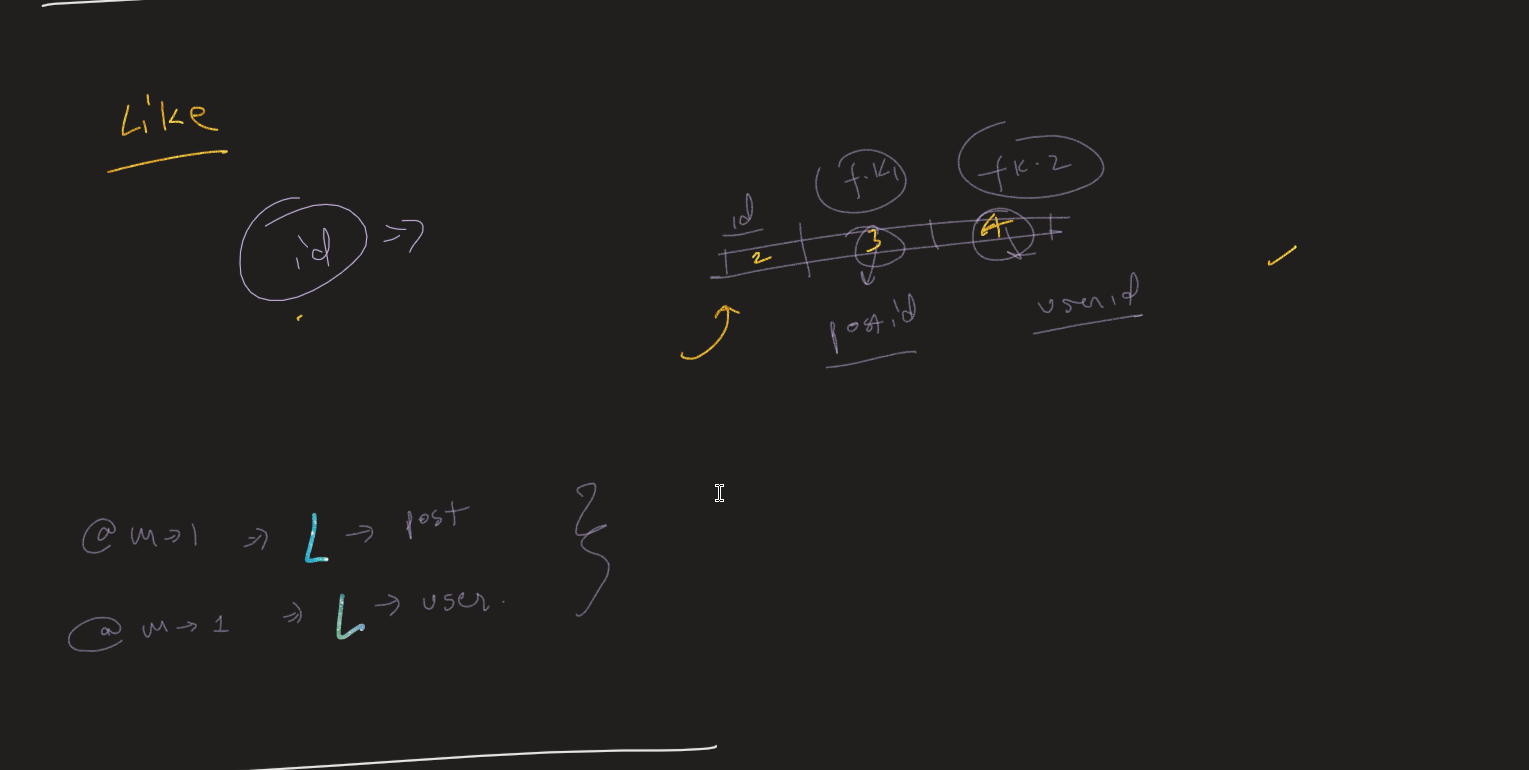 Like
id =>
id f.k1 fk.2
2 3 4
postid userid
@ m->1 => L -> post
@ m->1 => L -> user.